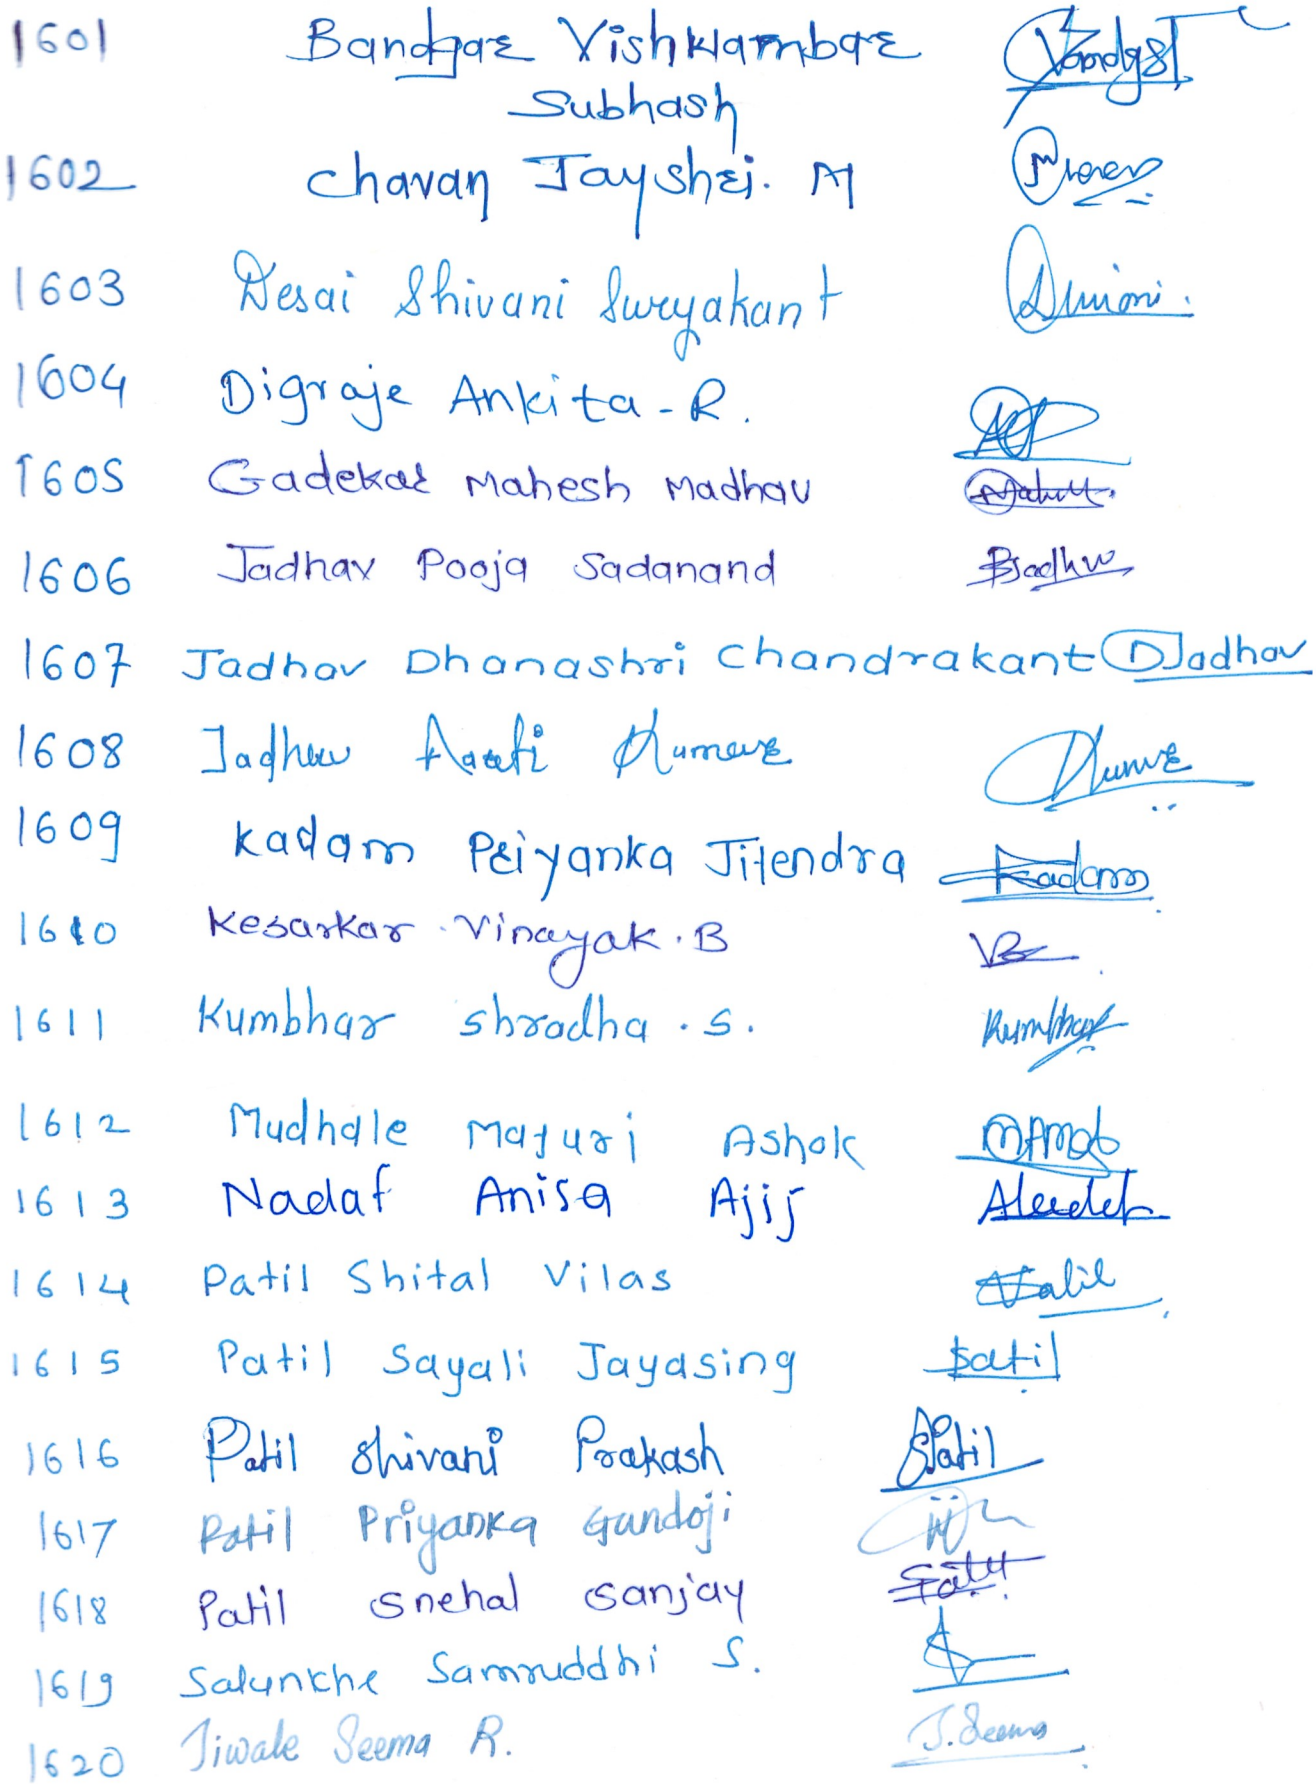 1601 Bandgar Vishwambar
Subhash
1602 Chavan Jayshri. M
1603 Desai Shivani Suryakant
1604 Digraje Ankita - R.
1605 Gadekar Mahesh Madhav
1606 Jadhav Pooja Sadanand
1607 Jadhav Dhanashri Chandrakant DJadhav
1608 Jadhav Aarti Kumar
1609 Kadam Priyanka Jitendra Kadam
1610 Kesarkar . Vinayak . B
1611 Kumbhar Shradha . S. Kumbhar
1612 Mudhale Mayuri Ashok
1613 Nadaf Anisa Ajij
1614 Patil Shital Vilas
1615 Patil Sayali Jayasing Satil
1616 Patil Shivani Prakash SPatil
1617 Patil Priyanka Gundoji
1618 Patil Snehal Sanjay
1619 Salunkhe Samruddhi S.
1620 Jiwale Seema R. J. Seema